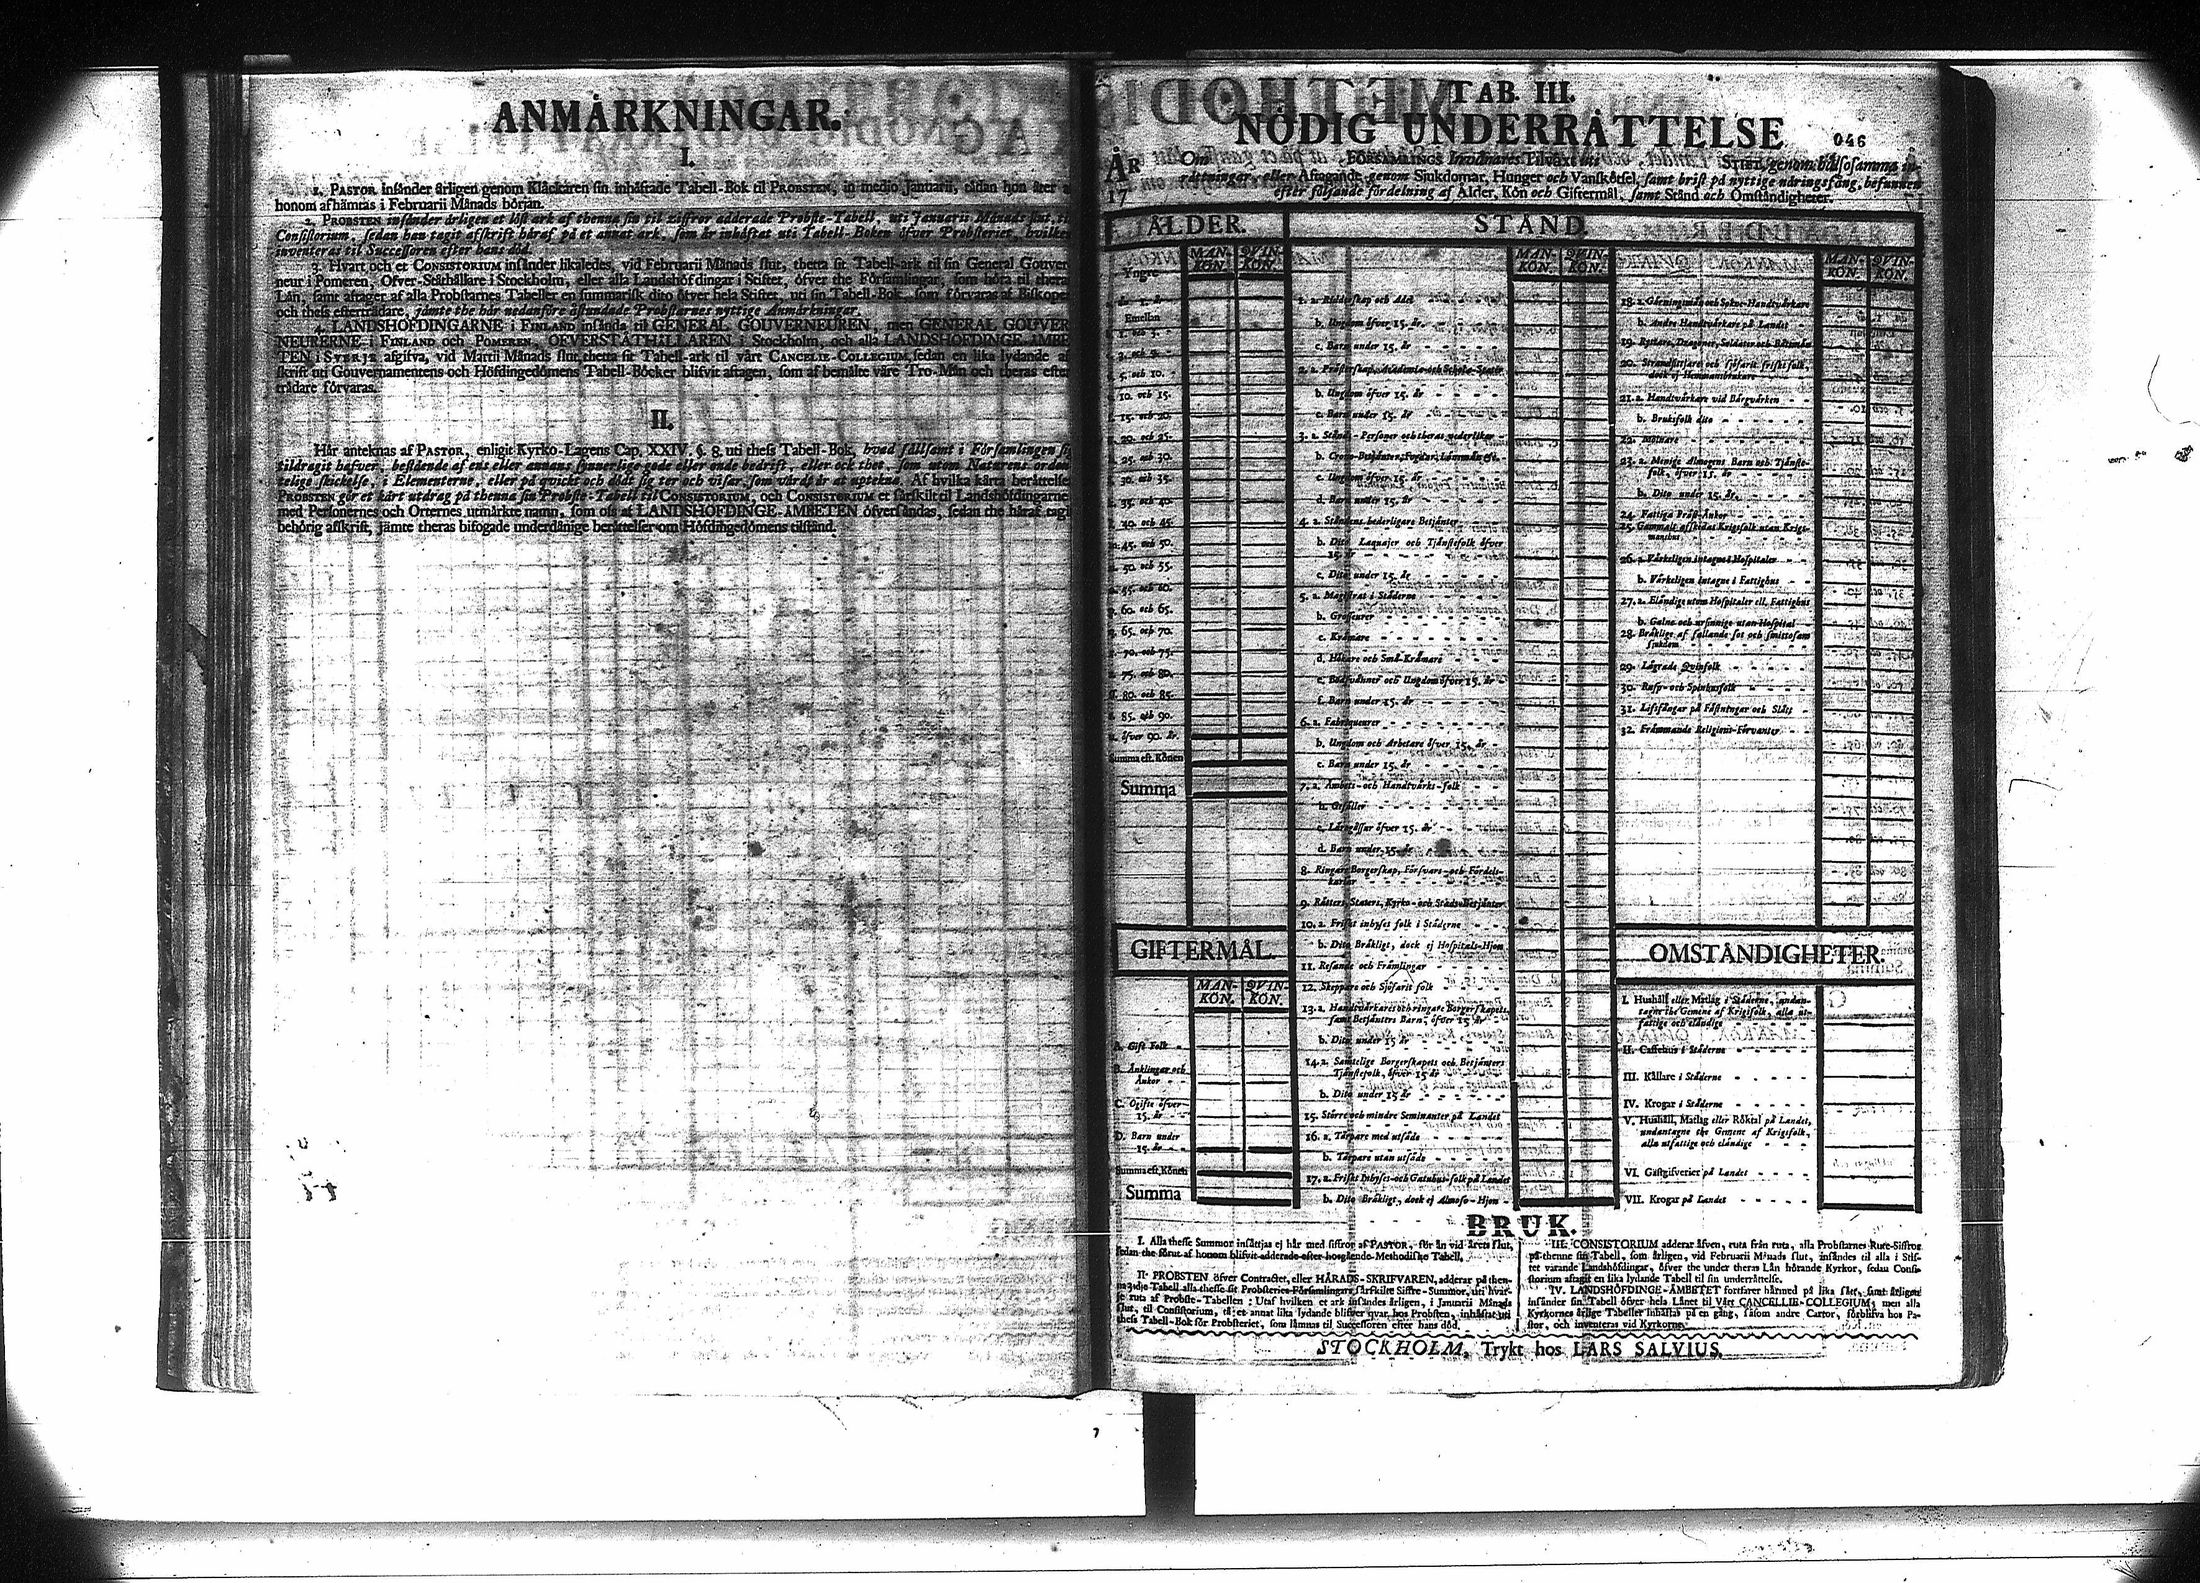 ANMÅRKNINGAR.
I.
1. PASTOR insånder årligen genom Klåckaren sin inhåftade Tabell-Bok til PROBSTEN, in medio Januarii, tådan hon åter a
honom afhåmtas i Februarii Månads början.
2. PROBSTEN insånder årligen et löst ark af thenna sin til ziffror adderade Probste-Tabell, uti Januarii Månads slut, til
Consistorium, sedan han tagit afskrift håraf på et annat ark, som år inhåftat uti Tabell-Boken öfver Probsteriet, hvilken
inventeras til Successoren efter hans död.
3. Hvart och et CONSISTORIUM insånder likaledes, vid Februarii Månads slut, thetta sit Tabell-ark til sin General Gouver
neur i Pomeren, Öfver-Ståthållare i Stockholm, eller alla Landshöfdingar i Stiftet, öfver the Församlingar, som höra til thera
Lån, samt aftager af alla Probstarnes Tabeller en summarisk dito öfver hela Stiftet, uti sin Tabell-Bok, som förvaras af Biskopen
och thess eftertrådare, jåmte the hår nedanföre åstundade Probstarnes nyttige Anmårkningar.
4. LANDSHÖFDINGARNE i FINLAND insånda til GENERAL GOUVERNEUREN, men GENERAL GOUVER
NEURERNE i FINLAND och POMEREN, ÖFVERSTÅTHÅLLAREN i Stockholm, och alla LANDSHÖFDINGE-ÅMBE
TEN i SVERJE afgifva, vid Martii Månads slut, thetta sit Tabell-ark til vårt CANCELIE-COLLEGIUM, sedan en lika lydande af
skrift uti Gouvernamentens och Höfdingedömens Tabell-Böcker blifvit aftagen, som af bemålte våre Tro-Mån och theras efter
trådare förvaras.
II.
Hår anteknas af PASTOR, enligit Kyrko-Lagens Cap. XXIV. §. 8. uti thess Tabell-Bok, hvad sållsamt i Församlingen sig
tildragit hafver, bestående af ens eller annans synnerlige gode eller onde bedrift, eller ock thet, som utom Naturens orden
telige skickelse, i Elementerne, eller på qvickt och dödt sig ter och visar, som vårdt år at uptekna. Af hvilka kårta beråttelser
PROBSTEN gör et kårt utdrag på thenna sin Probste-Tabell til CONSISTORIUM, och CONSISTORIUM et sårskilt til Landshöfdingarne
med Personernes och Orternes utmårkte namn, som oss af LANDSHÖFDINGE-ÅMBETEN öfversåndas, sedan the håraf tagit
behörig afskrift, jåmte theras bifogade underdånige beråttelser om Höfdingedömens tilstånd.
TAB. III.
NÖDIG UNDERRÅTTELSE
046
ÅR
17
Om FÖRSAMLINGS Invånares Tilvåxt uti STIFT, genom hålsosamma in-
råttningar, eller Aftagande genom Sjukdomar, Hunger och Vanskötsel, samt brist på nyttige nåringsfång, befunnen
efter följande fördelning af Ålder, Kön och Giftermål, samt Stånd och Omståndigheter.
ÅLDER.
MAN-KÖN. QVIN-KÖN.
Yngre
1. år
Emellan
1. och 3.
3. och 5.
5. och 10.
10. och 15.
15. och 20.
20. och 25.
25. och 30.
30. och 35.
35. och 40.
40. och 45.
45. och 50.
50. och 55.
och 60.
60. och 65.
65. och 70.
70. och 75.
75. och 80.
80. och 85.
85. och 90.
öfver 90. år.
Summa eft. Könen
Summa
GIFTERMÅL.
MAN-KÖN. QVIN-KÖN.
A. Gift Folk
B. Änklingar och
Änkor
C. Ogifte öfver
15. år
D. Barn under
15. år
Summa eft. Könen
Summa
STÅND.
MAN-KÖN. QVIN-KÖN.
1. a. Ridderskap och Adel
b. Ungdom öfver 15. år
c. Barn under 15. år
2. a. Pråsterskap, Academie och Schole-Stater
b. Ungdom öfver 15. år
c. Barn under 15. år
3. a. Stånds-Personer och theras vederlikar
b. Crono-Betjånter, Fogdar, Lånsmån &c.
c. Ungdom öfver 15. år
d. Barn under 15. år
4. a. Ståndens hederligare Betjånter
b. Dito Laquajer och Tjånstefolk öfver
15. år
c. Dito under 15. år
5. a. Magistrat i Ståderne
b. Grosseurer
c. Kråmare
d. Hökare och Små-Kråmare
e. Bodsvånner och Ungdom öfver 15. år
f. Barn under 15. år
6. a. Fabriqueurer
b. Ungdom och Arbetare öfver 15. år
c. Barn under 15. år
7. a. Åmbets- och Handtvårks-folk
b. Gesåller
c. Lårogåssar öfver 15. år
d. Barn under 15. år
8. Ringare Borgerskap, Försvars- och Fördels-
karlar
9. Råtters, Staters, Kyrko- och Stads-Betjånter
10. a. Friskt inhyses folk i Ståderne
b. Dito Bråkligt, dock ej Hospitals-Hjon
11. Resande och Fråmlingar
12. Skeppare och Sjöfarit folk
13. a. Handtvårkares och ringare Borgerskapets,
samt Betjånters Barn, öfver 15 år
b. Dito under 15 år
14. a. Samtelige Borgerskapets och Betjånters
Tjånstefolk, öfver 15 år
b. Dito under 15 år
15. Större och mindre Seminanter på Landet
16. a. Torpare med utsåde
b. Torpare utan utsåde
17. a. Friskt Inhyses- och Gatuhus-folk på Landet
b. Dito Bråkligt, dock ej Almoso-Hjon
MAN-KÖN. QVIN-KÖN.
18. a. Gårningsmån och Sokne-Handtvårkare
b. Andre Handtvårkare på Landet
19. Ryttare, Dragoner, Soldater och Båtsmån
20. Strandsittjare och sjöfarit friskt folk,
dock ej Hemmansbrukare
21. a. Handtvårkare vid Bårgvårken
b. Bruksfolk dito
22. Mölnare
23. a. Menige Almogens Barn och Tjånste-
folk, öfver 15. år
b. Dito under 15. år
24. Fattiga Pråst-Ånkor
25. Gammalt afskedat Krigsfolk utan Krigs-
manshus
26. a. Vårkeligen intagne i Hospitaler
b. Vårkeligen intagne i Fattighus
27. a. Elåndige utom Hospitaler ell. Fattighus
b. Galne och ursinnige utan Hospital
28. Bråklige af fallande sot och smittosam
sjukdom
29. Lågrade Qvinfolk
30. Rasp- och Spinhusfolk
31. Lifsfångar på Fåstningar och Slått
32. Fråmmande Religions-Förvanter
OMSTÅNDIGHETER.
I. Hushåll eller Matlag i Ståderne, undan-
tagne the Gemene af Krigsfolk, alla ut-
fattige och elåndige
II. Caffehus i Ståderne
III. Kållare i Ståderne
IV. Krogar i Ståderne
V. Hushåll, Matlag eller Röktal på Landet,
undantagne the Gemene af Krigsfolk,
alla utfattige och elåndige
VI. Gåstgifverier på Landet
VII. Krogar på Landet
BRUK.
I. Alla thesse Summor insåttjas ej hår med siffror af PASTOR, för ån vid årets slut,
sedan the förut af honom blifvit adderade efter hosgående Methodiske Tabell.
II. PROBSTEN öfver Contractet, eller HÅRADS-SKRIFVAREN, adderar på then-
na 3dje Tabell alla thesse sit Probsteries Församlingars sårskilte Siffre-Summor, uti hvar-
je ruta af Probste-Tabellen: Utaf hvilken et ark insåndes årligen, i Januarii Månads
slut, til Consistorium, et annat lika lydande blifver qvar hos Probsten, inhåftat uti
thess Tabell-Bok för Probsteriet, som låmnas til Successoren efter hans död.
III. CONSISTORIUM adderar åfven, ruta från ruta, alla Probstarnes Rute-Siffror
på thenne sin Tabell, som årligen, vid Februarii Månads slut, insåndes til alla i Stif-
tet varande Landshöfdingar, öfver the under theras Lån hörande Kyrkor, sedan Consi-
storium aftagit en lika lydande Tabell til sin underråttelse.
IV. LANDSHÖFDINGE-ÅMBETET fortfarer hårmed på lika sått, samt årligen
insånder sin Tabell öfver hela Lånet til Vårt CANCELLIE-COLLEGIUM; men alla
Kyrkornes årlige Tabeller inhåftas på en gång, såsom andre Cartor, förblifva hos Pa-
stor, och inventeras vid Kyrkorne.
STOCKHOLM, Trykt hos LARS SALVIUS.